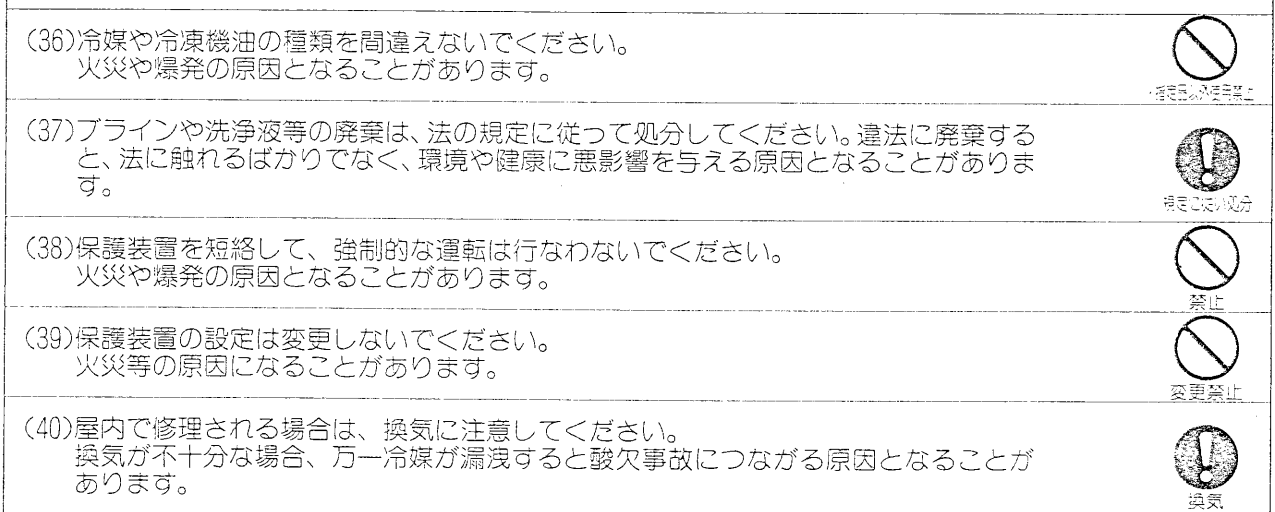 (36)冷媒や冷凍機油の種類を間違えないでください。
火災や爆発の原因となることがあります。
・指定品以外使用禁止
(37)ブラインや洗浄液等の廃棄は、法の規定に従って処分してください。違法に廃棄する
と、法に触れるばかりでなく、環境や健康に悪影響を与える原因となることがありま
す。
規定に従い処分
(38)保護装置を短絡して、強制的な運転は行なわないでください。
火災や爆発の原因となることがあります。
禁止
(39)保護装置の設定は変更しないでください。
火災等の原因になることがあります。
変更禁止
(40)屋内で修理される場合は、換気に注意してください。
換気が不十分な場合、万一冷媒が漏洩すると酸欠事故につながる原因となることが
あります。
換気